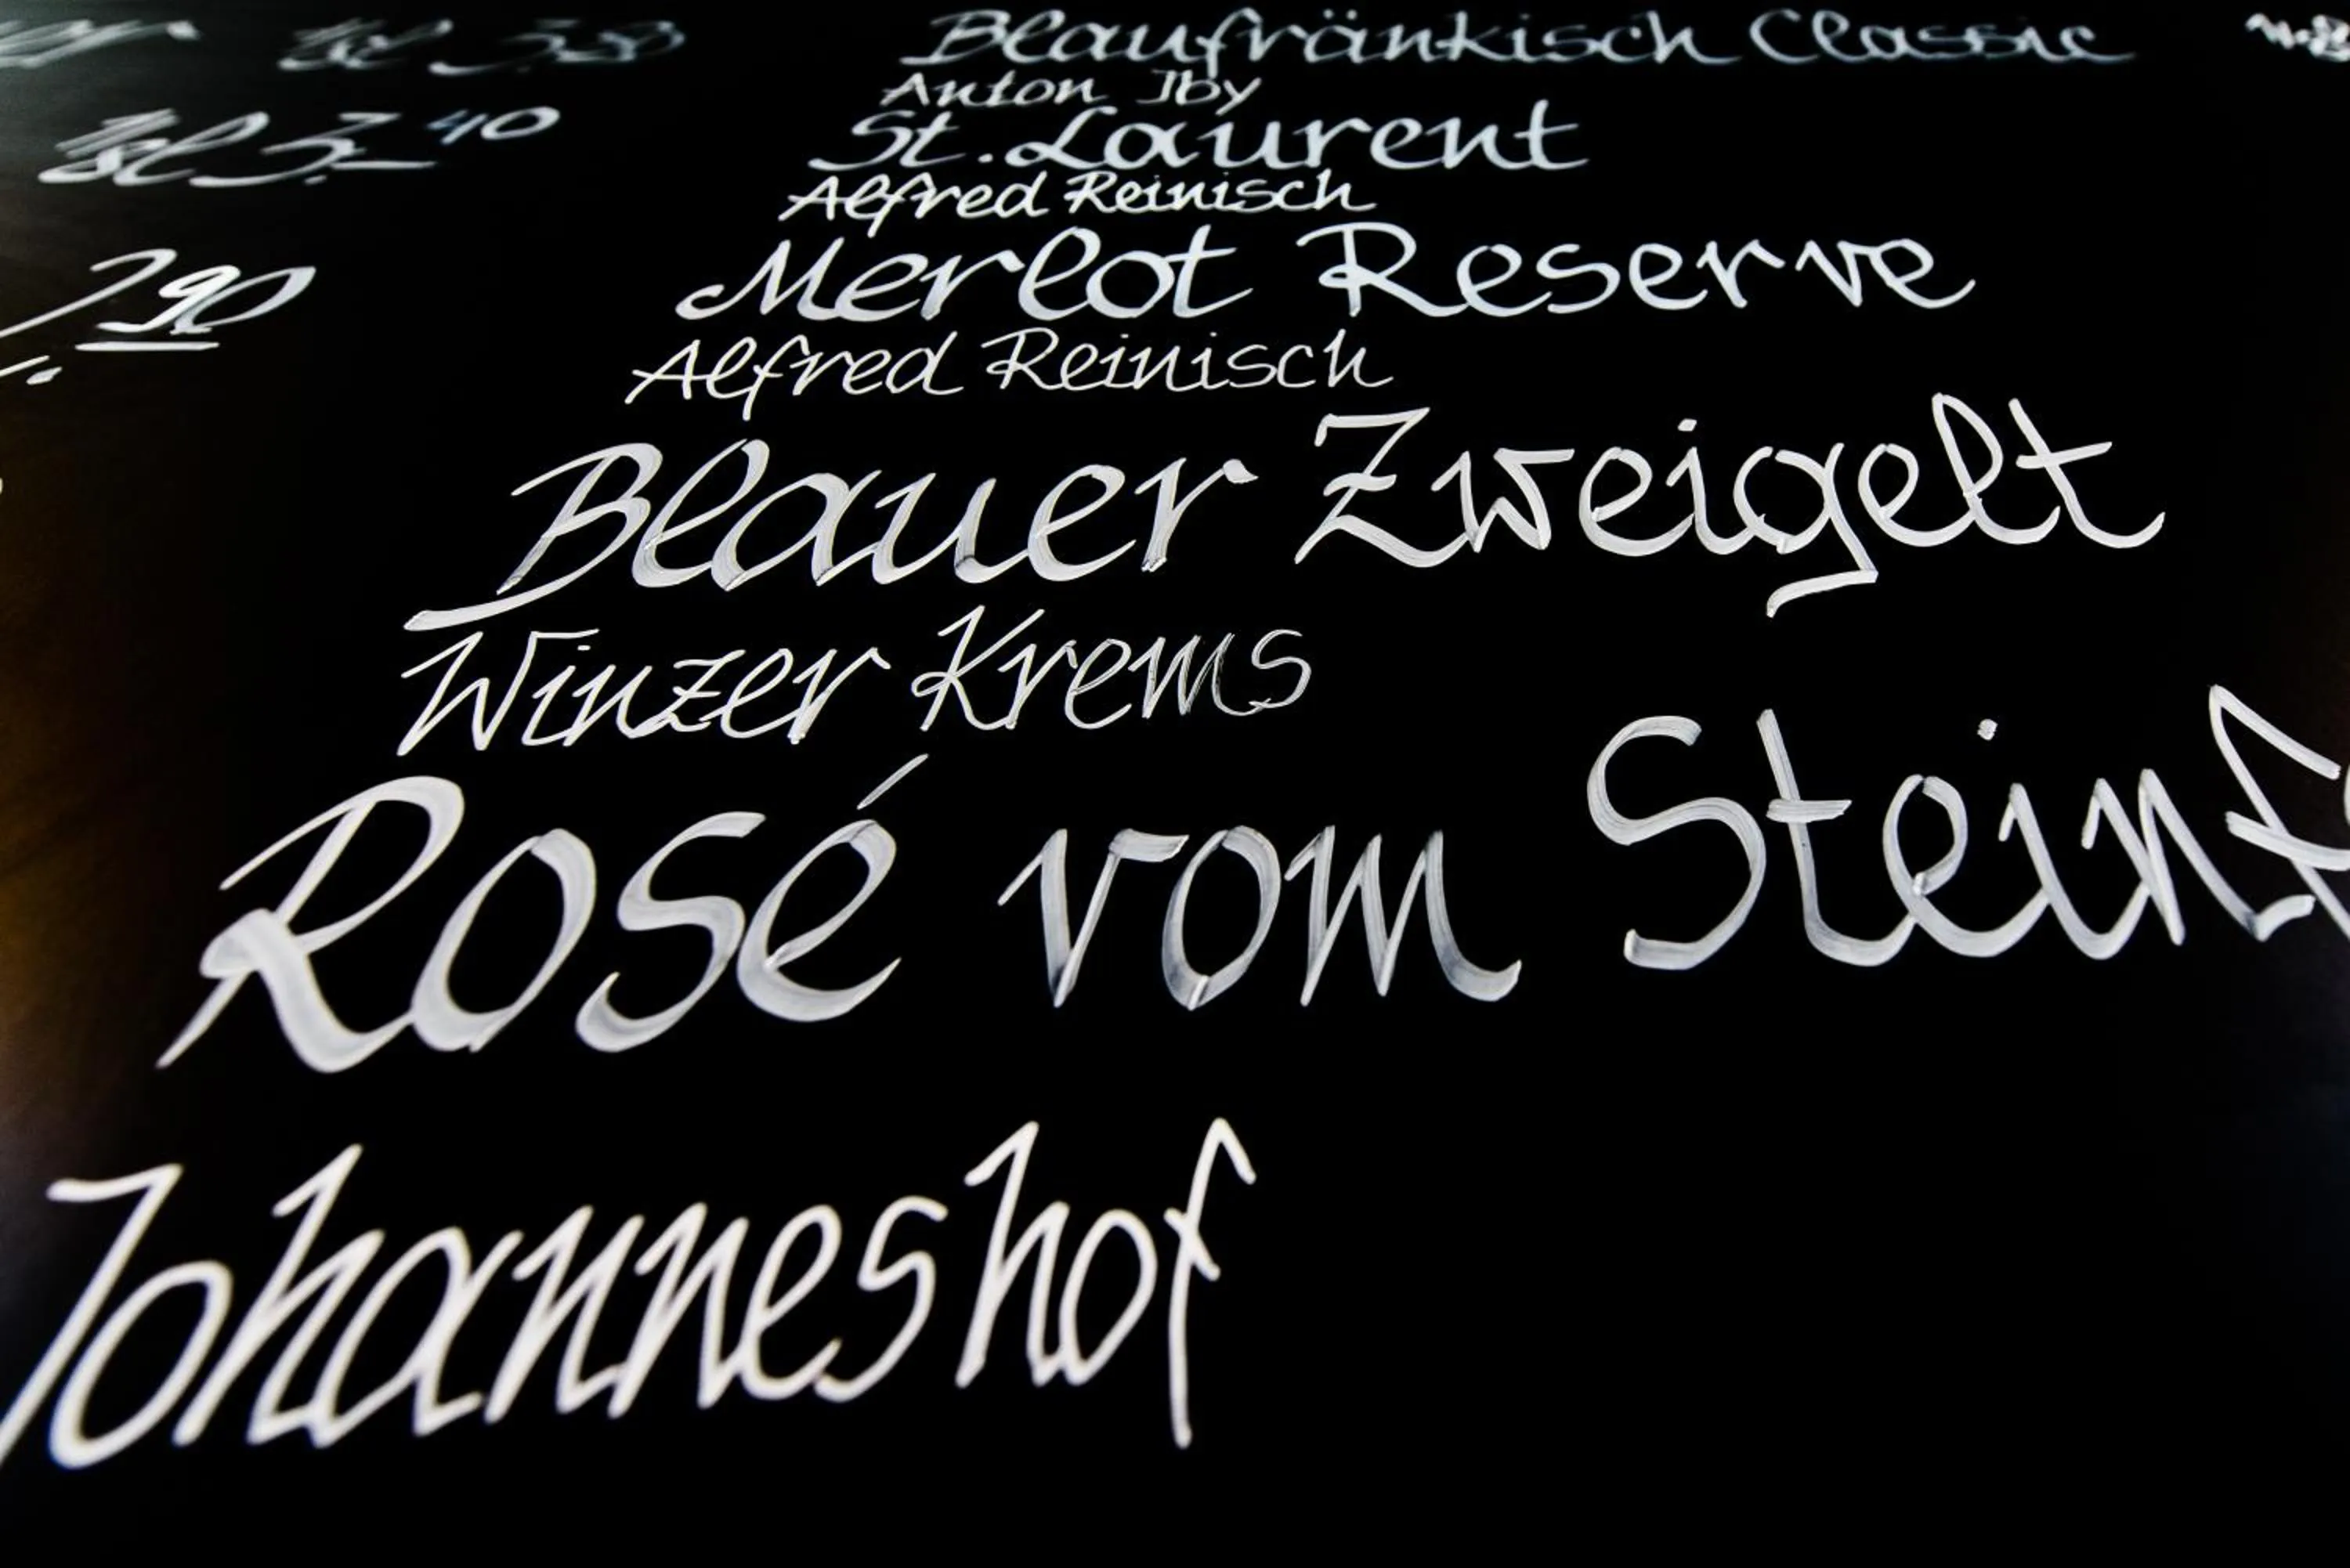 Blaufränkisch Classic
Anton Iby
40
St. Laurent
Alfred Reinisch
Merlot Reserve
90
Alfred Reinisch
Blauer Zweigelt
Winzer Krems
Rosé vom
Johanneshof